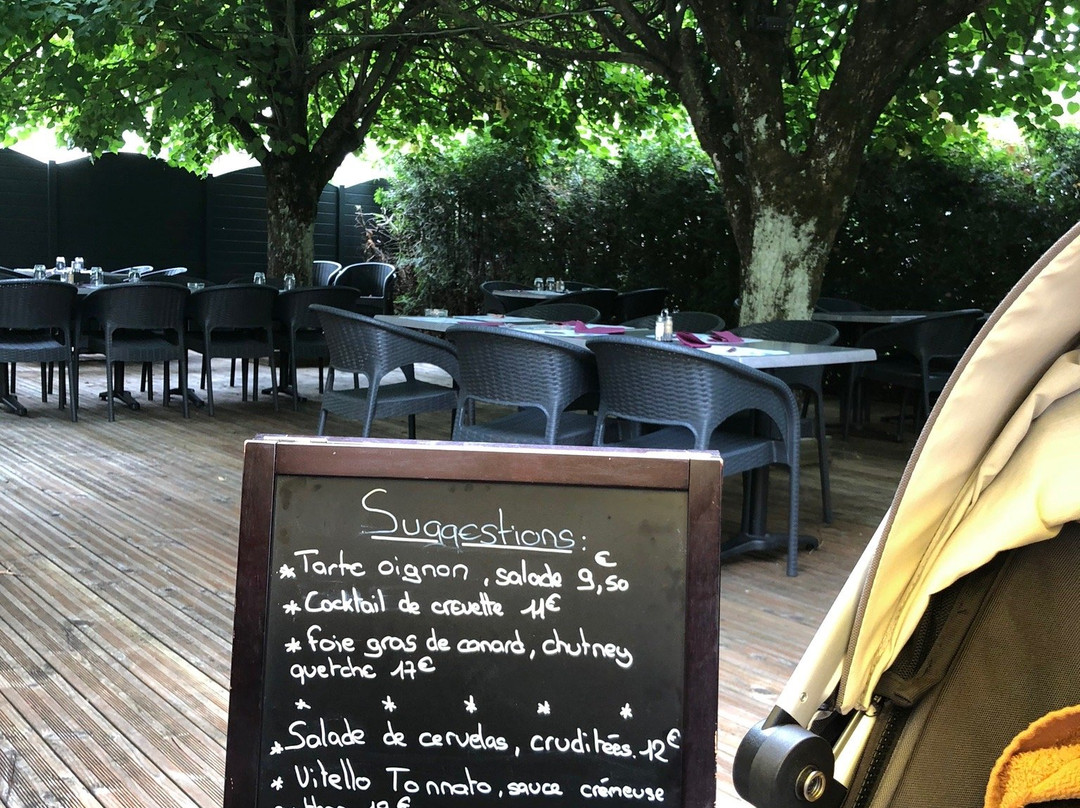 Suggestions:
* Tarte oignon, salade 9,50 €
* Cocktail de crevette 11€
* foie gras de canard, chutney
quetche 17€
* * * * *
* Salade de cervelas, crudités. 12€
* Vitello Tonnato, sauce crémeuse